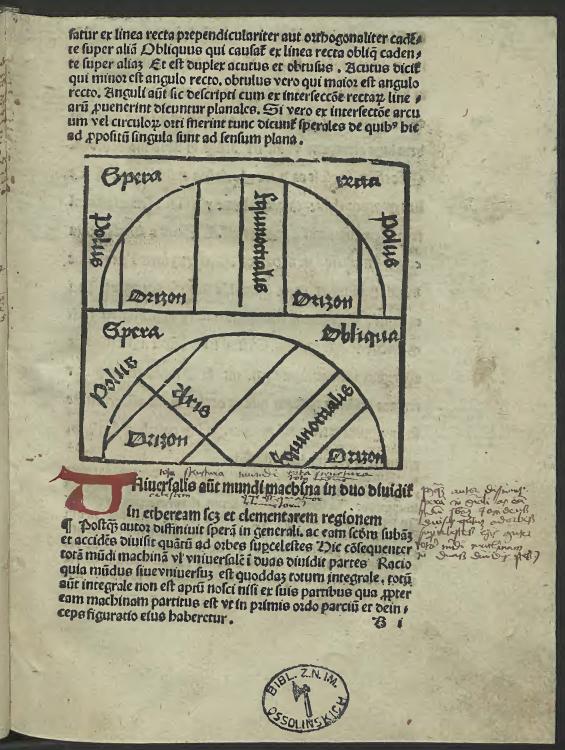 satur ex linea recta prependiculariter aut orthogonaliter cadē⸗
te super aliā Obliquus qui causat̄ ex linea recta obliq̄ caden⸗
te super aliaꝫ Et est duplex acutus et obtusus . Acutus dicit̄
qui minor est angulo recto. obtulus vero qui maior est angulo
recto. Anguli aūt sic descripti cum ex intersectōe rectaꝝ line ⸗
arū ꝓuenerint dicuntur planales. Si vero ex intersectōe arcu
um vel circuloꝝ orti fuerint tunc dicunt̄ sperales de quibꝰ hic
ad ꝓpositū singula sunt ad sensum plana .
Spera recta
Polus
Equinoctialis
Polus
Orizon Orizon
Spera Obliqua
Polus
Axis
Equinoctialis
Orizon Orizon
tota structura mundi
Uniuersalis aūt mundi machina in duo diuidit̄
celestem
in etheream scꝫ et elementarem regionem
¶ Postq̄ꝫ autor diffiniuit sperā in generali, ac eam scd̄m subāꝫ
et accidēs diuisit quātū ad orbes supcelestes Hic cōsequenter
totā mūdi machinā vl' vniuersalē ī duas diuidit partes Ratio
quia mūdus siue vniuersuꝫ est quoddaꝫ totum integrale. totū
aūt integrale non est aptū nosci nisi ex suis partibus qua ꝓpter
eam machinam partitus est vt in primis ordo parciū et dein ⸗
ceps figuratio eius haberetur .
B i
BIBL. Z.N.IM.
OSSOLIŃSKICH